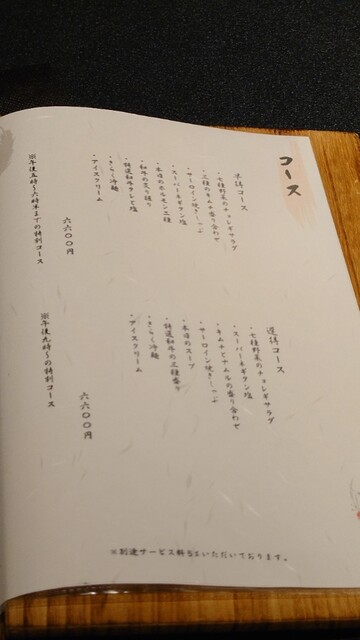 コース
早得コース
・七種野菜のチョレギサラダ
・三種のキムチ盛り合わせ
・サーロイン焼きしゃぶ
・スーパーネギタン塩
・本日のホルモン二種
・和牛の炙り握り
・特選和牛クレピ塩
・きらく冷麺
・アイスクリーム
六六〇〇円
※午後五時〜六時半までの特別コース
遅得コース
・七種野菜のチョレギサラダ
・スーパーネギタン塩
・キムチとナムルの盛り合わせ
・サーロイン焼きしゃぶ
・本日のスープ
・特選和牛の三種盛り
・きらく冷麺
・アイスクリーム
六六〇〇円
※午後九時〜の特別コース
※別途サービス料5%いただいております。